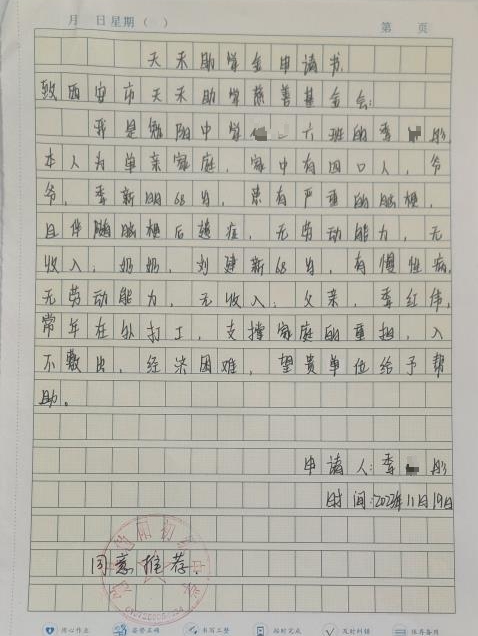 月 日 星期（ ） 第 页
天禾助学金申请书
致西安市天禾助学慈善基金会：
我是 阳中学 六班的季 彤，
本人为单亲家庭，家中有四口人，爷
爷，季新明68岁，患有严重的脑梗，
且伴随脑梗后遗症，无劳动能力，无
收入，奶奶，刘建新68岁，有慢性病，
无劳动能力，无收入，父亲，季红伟，
常年在外打工，支撑家庭的重担，入
不敷出，经济困难，望贵单位给予帮
助。
申请人：季 彤
时间：2023年11月19日
同意推荐.
用心作业 姿势正确 书写工整 按时完成 及时纠错